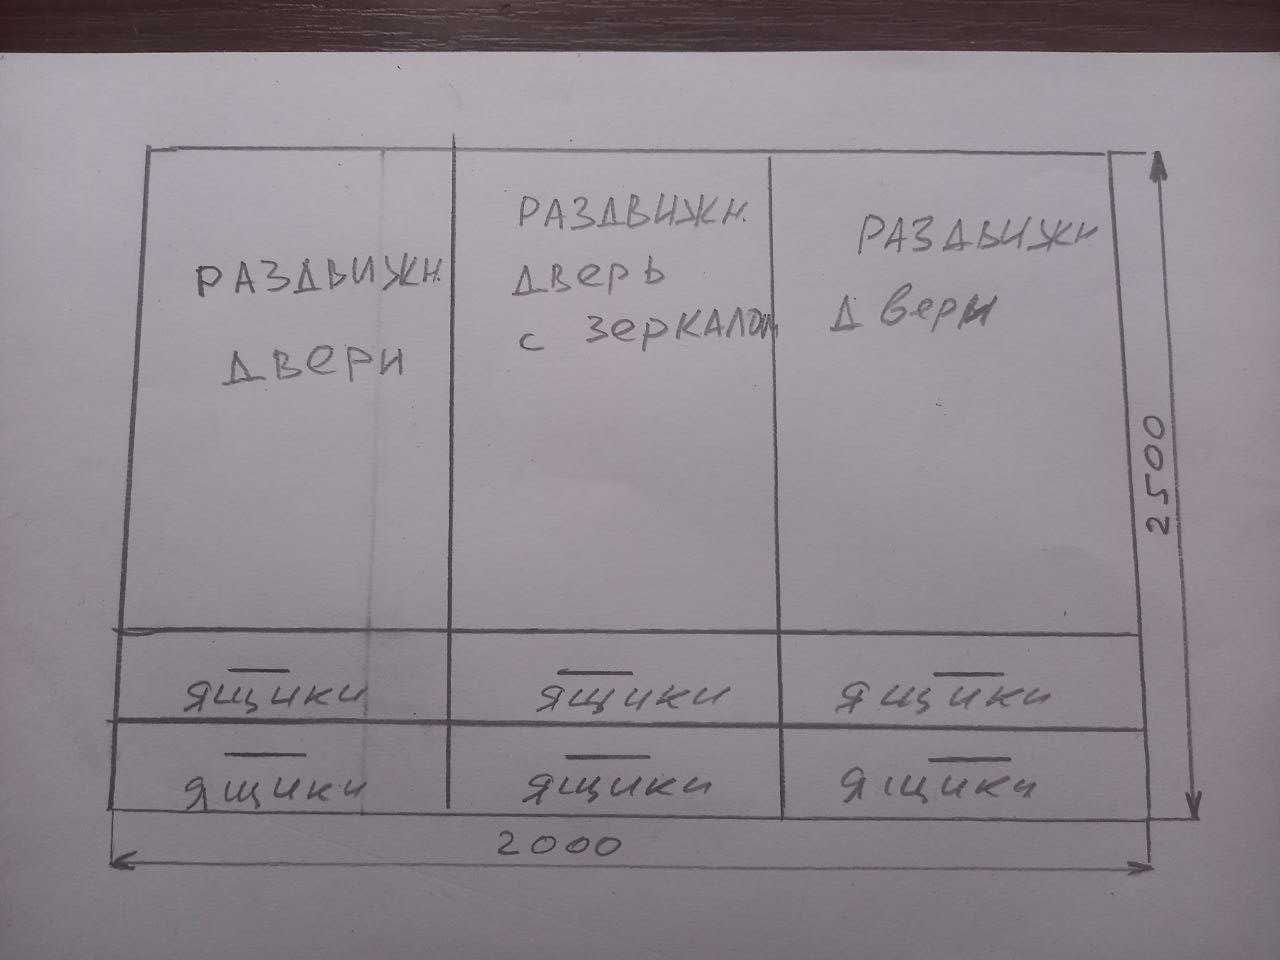 РАЗДВИЖН.
ДВЕРИ
РАЗДВИЖН.
ДВЕРЬ
С ЗЕРКАЛОМ
РАЗДВИЖН
ДВЕРИ
2500
ящики ящики ящики
ящики ящики ящики
2000